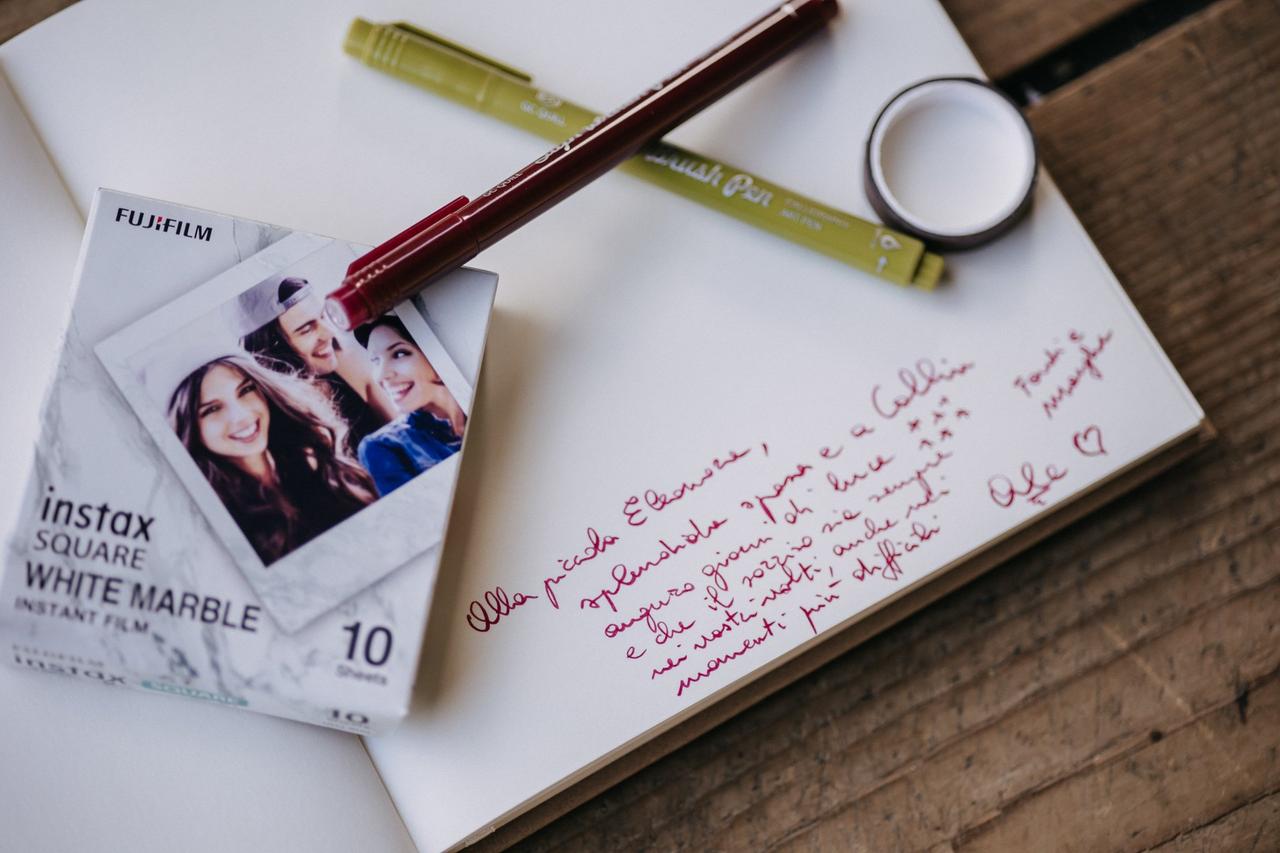 FUJIFILM
instax
SQUARE
WHITE MARBLE
INSTANT FILM
10
Sheets
FUJIFILM
instax SQUARE
10
Brush Pen
Alla piccola Eleonora,
splendida sposa e a Collin
auguro giorni di luce
e che il sorriso sia sempre
nei vostri volti, anche nei
momenti più difficili
Ale